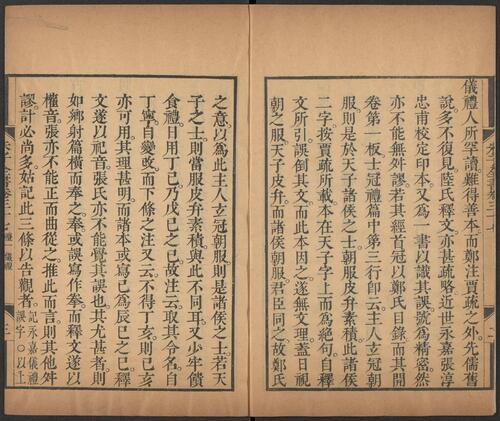 儀禮人所罕讀難得善本而鄭注賈疏之外先儒舊
說多不復見陸氏釋文亦甚疏略近世永嘉張淳
忠甫校定印本又為一書以識其誤號為精密然
亦不能無舛謬若其經首冠以鄭氏目錄而其開
卷第一板士冠禮篇中第三行即云主人玄冠朝
服則是於天子諸侯之士朝服皮弁素積此諸侯
二字按賈疏所載本在天子字上而為絕句自釋
文所引誤倒其文而此本因之遂無文理蓋日視
朝之服天子皮弁而諸侯朝服君臣同之故鄭氏
之意以為此主人玄冠朝服則是諸侯之士若天
子之士則當服皮弁素積與此不同耳又少牢饋
食禮日用丁己乃戊己之己故注云取其令名自
丁寧自變改而下條之注又云不得丁亥則己亥
亦可用其理甚明而諸本或寫己為辰巳之巳釋
文遂以祀音張氏亦不能覺其誤也其尤甚者則
如鄉射篇橫而奉之奉或誤寫作拳而釋文遂以
權音張亦不能正而曲從之推此而言則其他舛
謬計必尚多姑記此三條以告觀者 記永嘉儀禮誤字〇以上